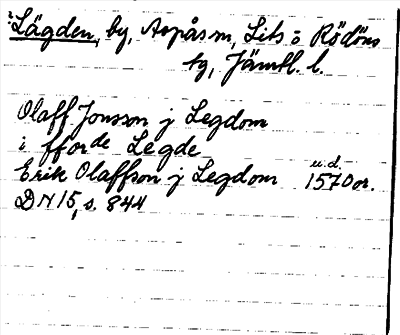 Lägden, by, Aspås sn, Lits o Rödöns
tg, Jämtl. l.
Olaff Jonsson j Legdom
i fforde Legde
u.d.
Erik Olaffson j Legdom 1570 or.
DN 15, s. 844